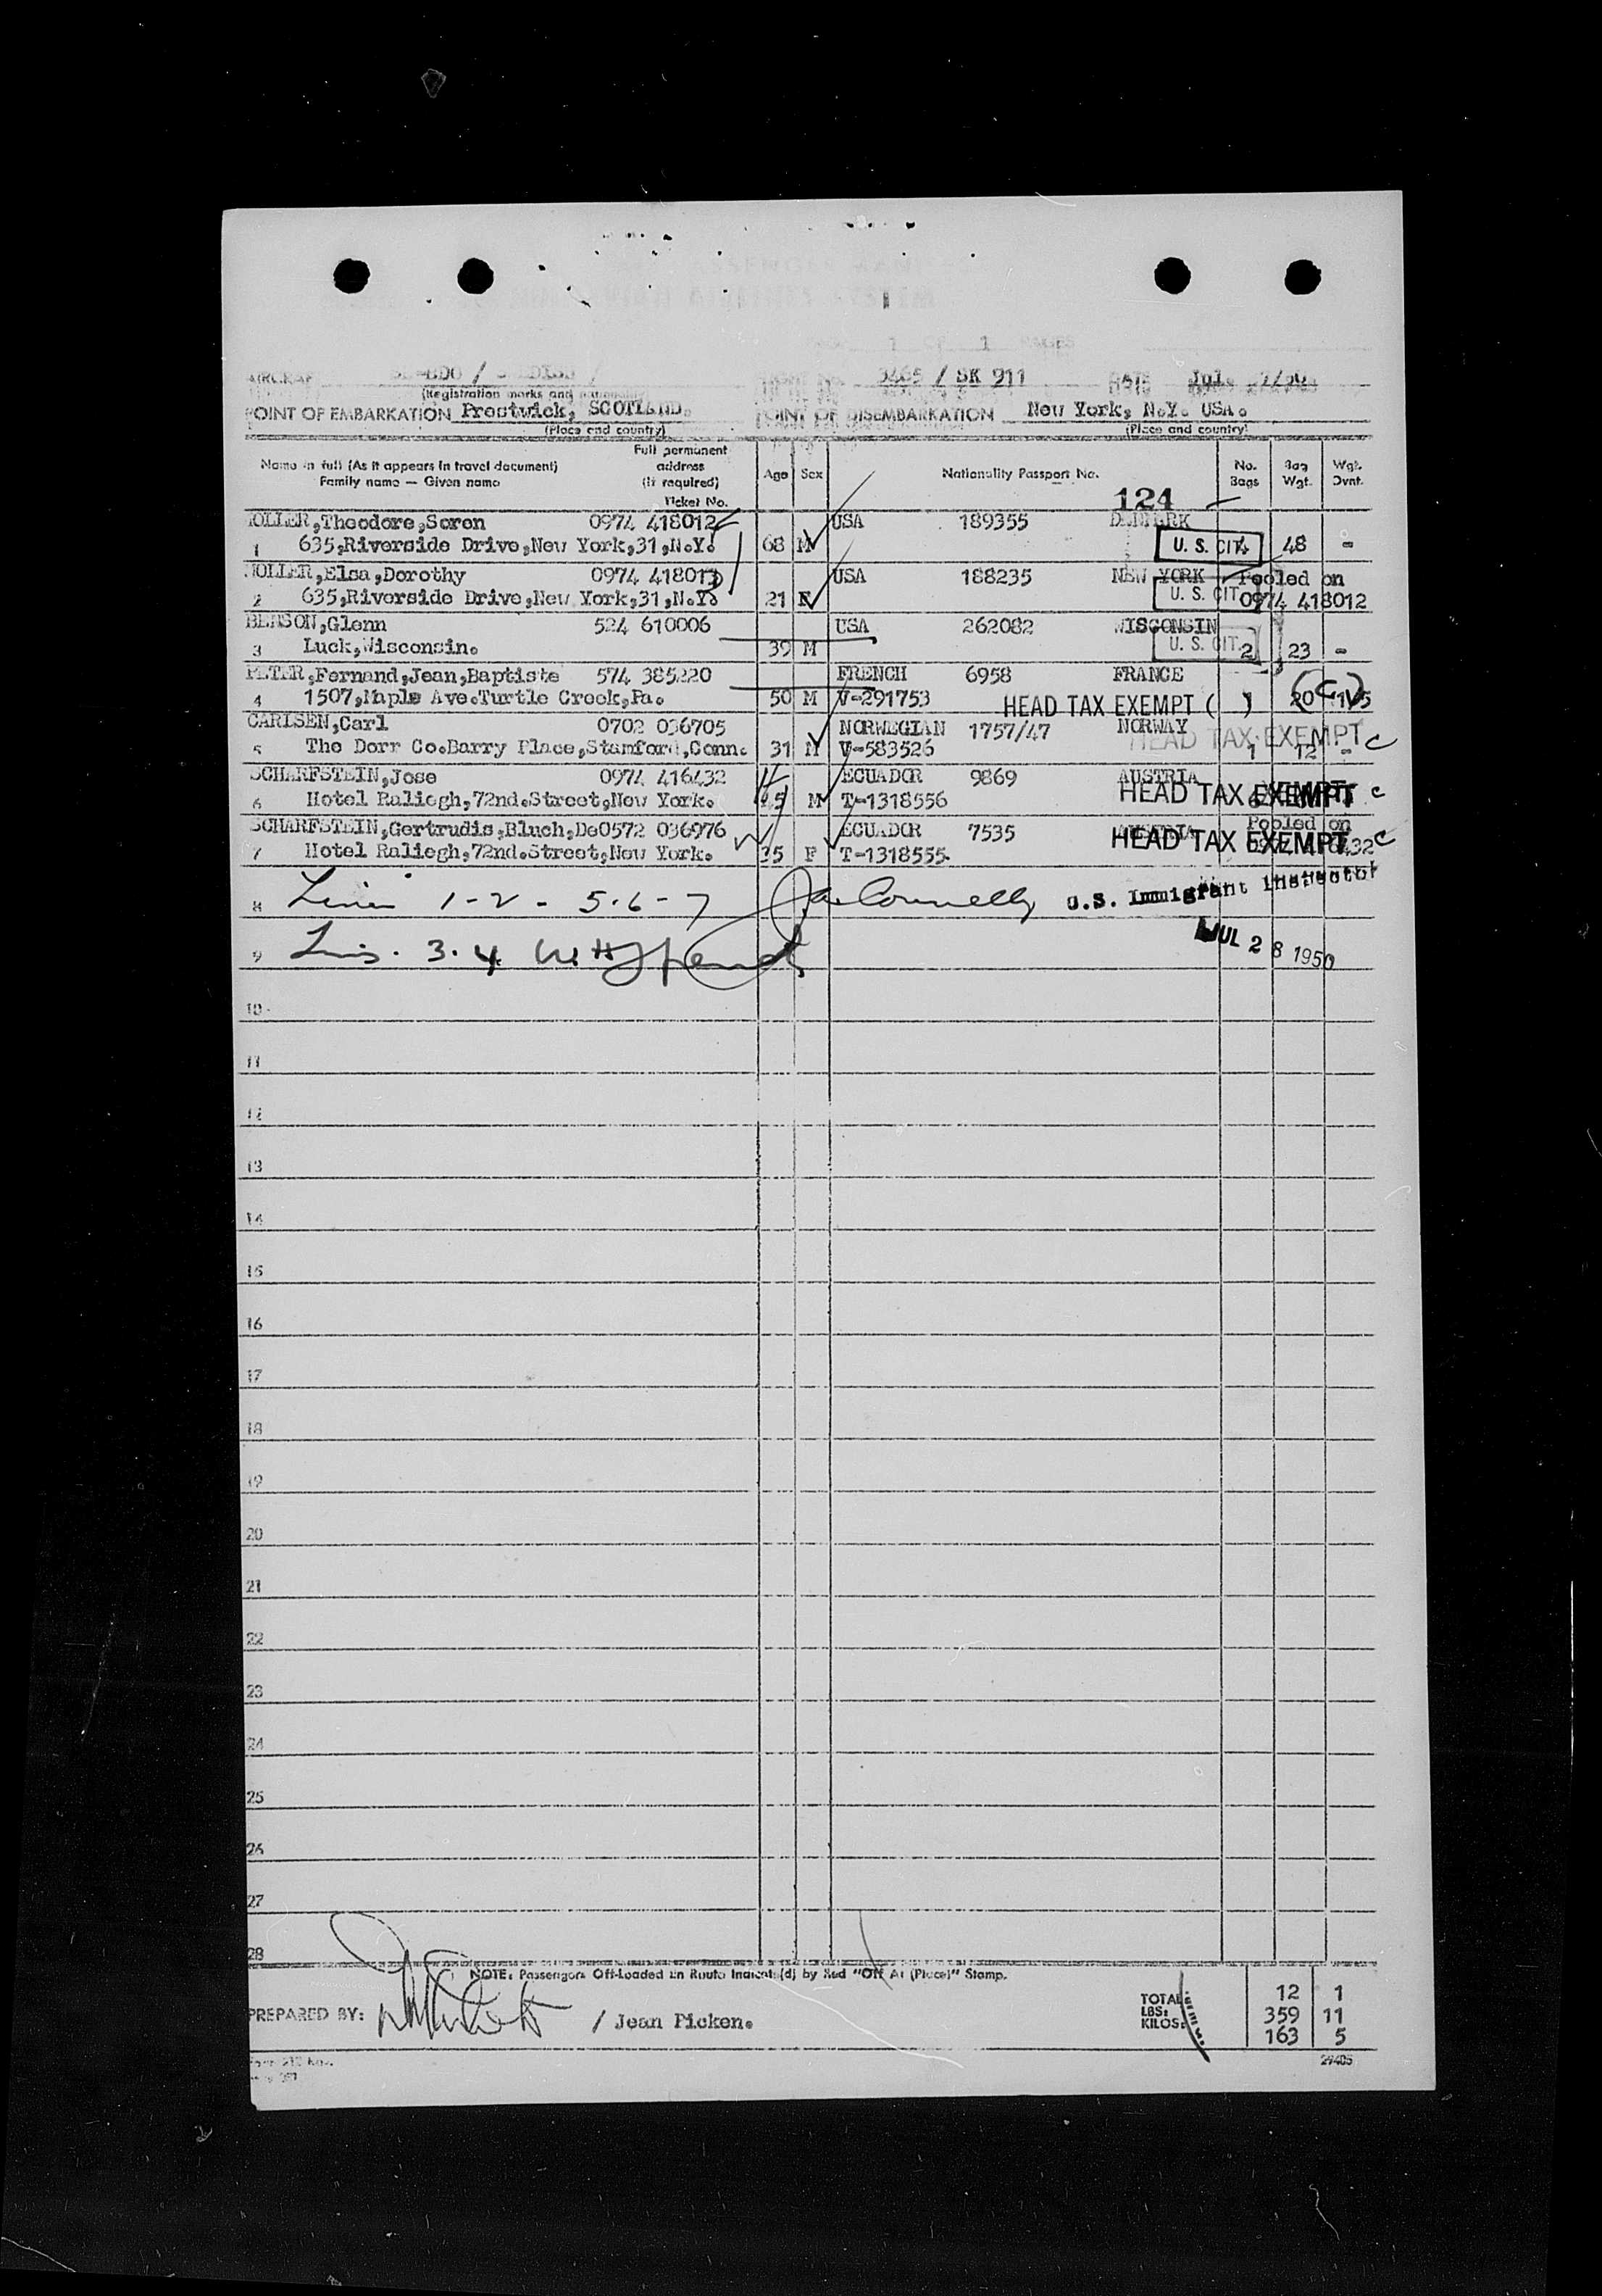 1 OF 1 PAGES
3465 / SK 911
POINT OF EMBARKATION Prestwick, SCOTLAND.
POINT OF DISEMBARKATION New York, N.Y. USA.
(Registration marks and nationality)
(Place and country)
(Place and country)
Name in full (As it appears in travel document)
Family name — Given name
Full permanent
address
(if required)
Ticket No.
Age
Sex
Nationality Passport No.
No.
Bags
Bag
Wgt.
Wgt.
Ovnt.
124
MOLLER,Theodore,Soren 0974 418012 USA 189355 DENMARK
1 635,Riverside Drive,New York,31,N.Y. 68 M U. S. CIT. 4 48 -
MOLLER,Elsa,Dorothy 0974 418013 USA 188235 NEW YORK Pooled on
2 635,Riverside Drive,New York,31,N.Y. 21 F U. S. CIT. 0974 418012
BENSON,Glenn 524 610006 USA 262082 WISCONSIN
3 Luck,Wisconsin. 39 M U. S. CIT. 2 23 -
PETER,Fernand,Jean,Baptiste 574 385220 FRENCH 6958 FRANCE
4 1507,Maple Ave.Turtle Creek,Pa. 50 M V-291753 HEAD TAX EXEMPT ( ) 20 (C)
CARLSEN,Carl 0702 036705 NORWEGIAN 1757/47 NORWAY
HEAD TAX EXEMPT C
5 The Dorr Co.Barry Place,Stamford,Conn. 31 M V-583526 1 12 -
SCHARFSTEIN,Jose 0974 416432 ECUADOR 9869 AUSTRIA
6 Hotel Raliegh,72nd.Street,New York. 45 M T-1318556 HEAD TAX EXEMPT C
SCHARFSTEIN,Gertrudis,Bluch,De 0572 036976 ECUADOR 7535 Pooled on
HEAD TAX EXEMPT C
7 Hotel Raliegh,72nd.Street,New York. 35 F T-1318555
8 1-2- 5-6-7 Connelly U.S. Immigrant Inspector
9 3.4
JUL 28 1950
10
11
12
13
14
15
16
17
18
19
20
21
22
23
24
25
26
27
28
NOTE: Passengers Off-Loaded En Route Indicat (d) by Red "Off At (Place)" Stamp.
TOTAL 12 1
LBS: 359 11
PREPARED BY: / Jean Picken.
KILOS: 163 5
29405